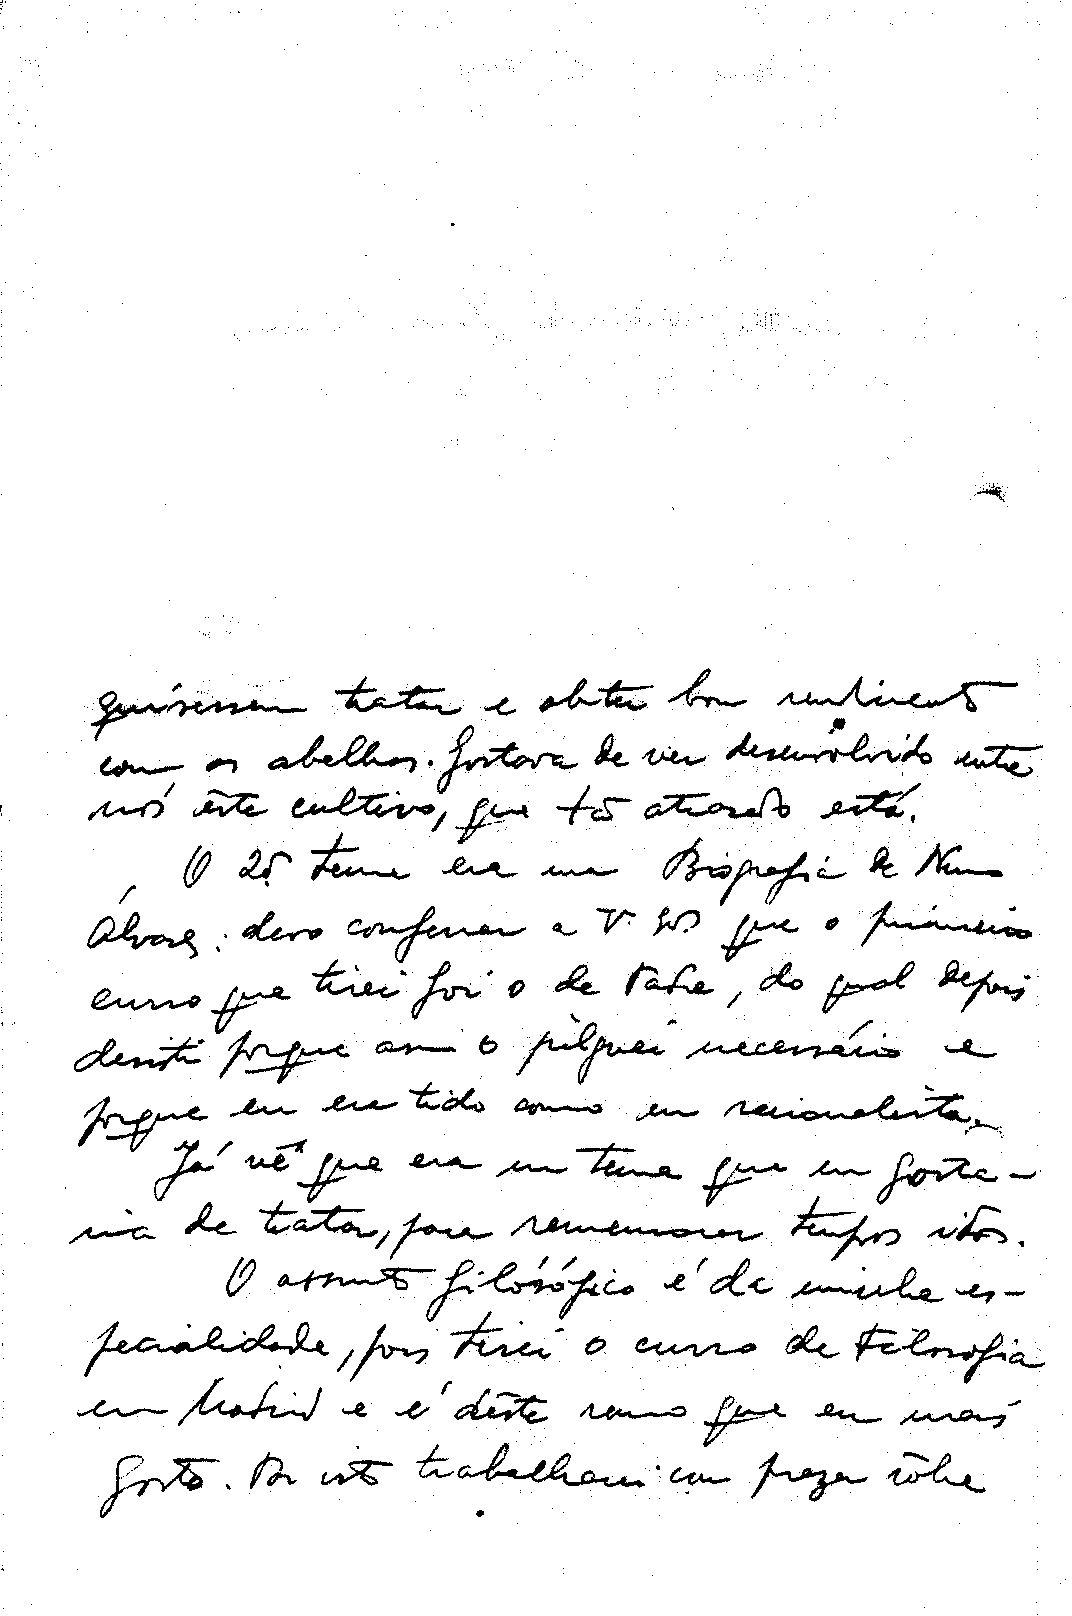 quisessem tratar e obter bom rendimento
com as abelhas. Gostava de ver desenvolvido entre
nós êste cultivo, que tão atrasado está.
O 2º tema era uma Biografia de Nuno
Álvares: devo confessar a V. que o primeiro
curso que tirei foi o de Padre, do qual depois
desisti porque assim o julguei necessário e
porque eu era tido como um racionalista.
Já vê que era um tema que eu gosta-
ria de tratar, para rememorar tempos idos.
O assunto filosófico é da minha es-
pecialidade, pois tirei o curso de Filosofia
em Madrid e é dêste ramo que eu mais
gosto. Por isto trabalharei com prazer sôbre